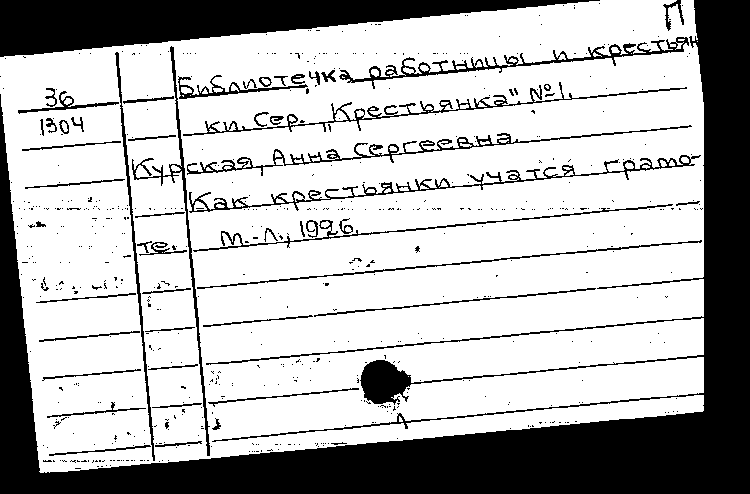 П
36 Библиотечка работницы и крестьян
1304 ки. Сер. „Крестьянка". №1.
Курская, Анна Сергеевна.
Как крестьянки учатся грамо-
те. М.-Л., 1926.